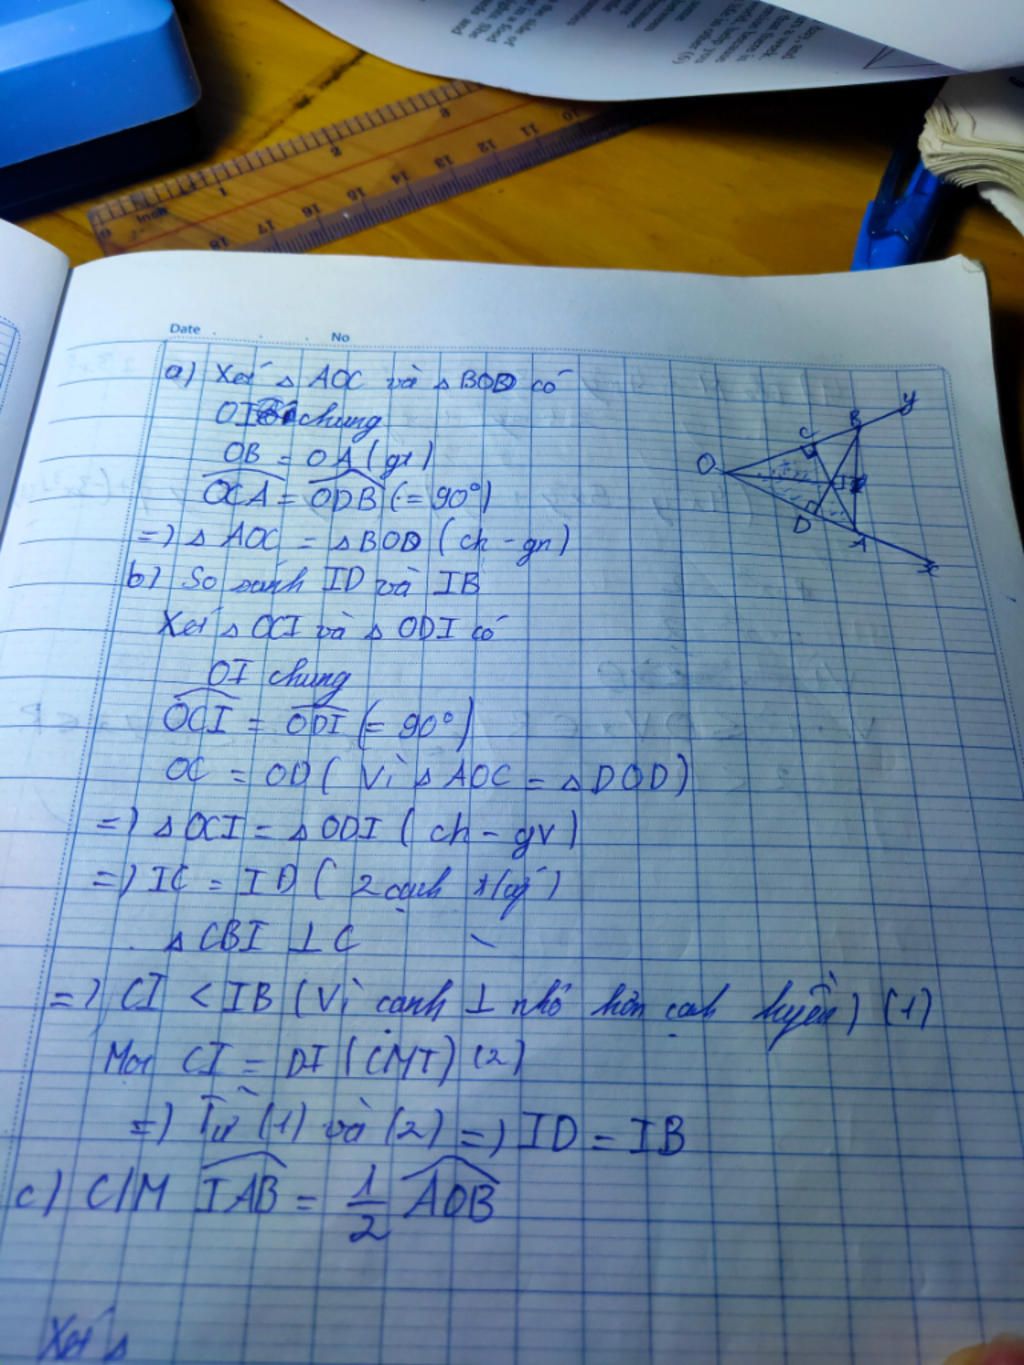 Date No
a) Xét △ AOC và △ BOD có
OI chung
OB = OA (gt)
OCA = ODB (= 90°)
=) △ AOC = △ BOD (ch - gn)
b) So sánh ID và IB
Xét △ OCI và △ ODI có
OI chung
OCI = ODI (= 90°)
OC = OD ( Vì △ AOC = △ DOD)
=) △ OCI = △ ODI ( ch - gv)
=) IC = ID ( 2 cạnh
△ CBI ⊥ C
=) CI < IB (Vì cạnh ⊥ nhỏ hơn cạnh huyền) (1)
Mà CI = DI (CMT) (2)
=) Từ (1) và (2) =) ID = IB
c) C/M IAB = 1/2 AOB
Xét △
O C B y
I
D A x
inch 1 2 3
18 17 16 15 14 13 12 11 10